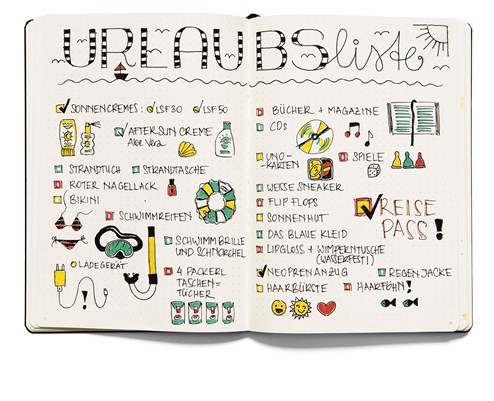 URLAUBSliste
SONNENCREMES: LSF 30 LSF 50
AFTER SUN CREME
Aloe Vera
STRANDTUCH STRANDTASCHE
ROTER NAGELLACK
BIKINI
SCHWIMMREIFEN
SCHWIMMBRILLE
UND SCHNORCHEL
LADEGERÄT
4 PACKERL
TASCHEN=
TÜCHER
BÜCHER + MAGAZINE
CDs
UNO-
KARTEN
SPIELE
WEISSE SNEAKER
FLIP FLOPS
SONNENHUT
REISE
PASS!
DAS BLAUE KLEID
LIPGLOSS + WIMPERNTUSCHE
(WASSERFEST!)
NEOPRENANZUG REGENJACKE
HAARBÜRSTE HAARFÖHN!